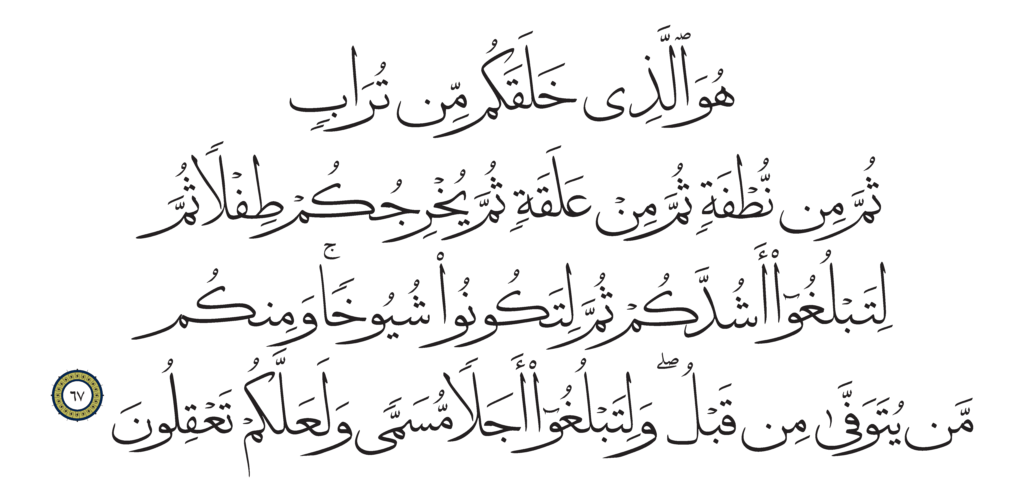 هُوَ ٱلَّذِى خَلَقَكُم مِّن تُرَابٍ
ثُمَّ مِن نُّطْفَةٍ ثُمَّ مِنْ عَلَقَةٍ ثُمَّ يُخْرِجُكُمْ طِفْلًا ثُمَّ
لِتَبْلُغُوٓا۟ أَشُدَّكُمْ ثُمَّ لِتَكُونُوا۟ شُيُوخًا ۚ وَمِنكُم
مَّن يُتَوَفَّىٰ مِن قَبْلُ ۖ وَلِتَبْلُغُوٓا۟ أَجَلًا مُّسَمًّى وَلَعَلَّكُمْ تَعْقِلُونَ ٦٧